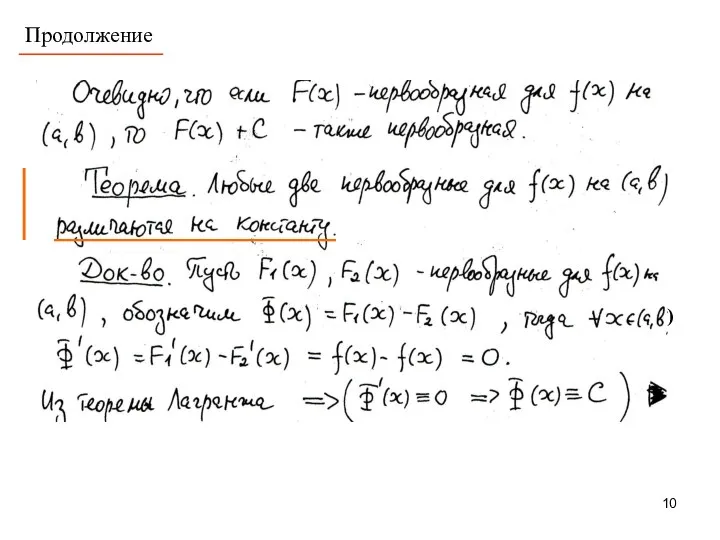 Продолжение
Очевидно, что если F(x) – первообразная для f(x) на
(a,b), то F(x) + C – также первообразная.
Теорема. Любые две первообразные для f(x) на (a,b)
различаются на константу.
Док-во. Пусть F₁(x), F₂(x) – первообразные для f(x) на
(a,b), обозначим Φ(x) = F₁(x) – F₂(x), тогда ∀x∈(a,b)
Φ'(x) = F₁'(x) – F₂'(x) = f(x) – f(x) = 0.
Из теоремы Лагранжа => (Φ'(x) ≡ 0 => Φ(x) ≡ C)
10